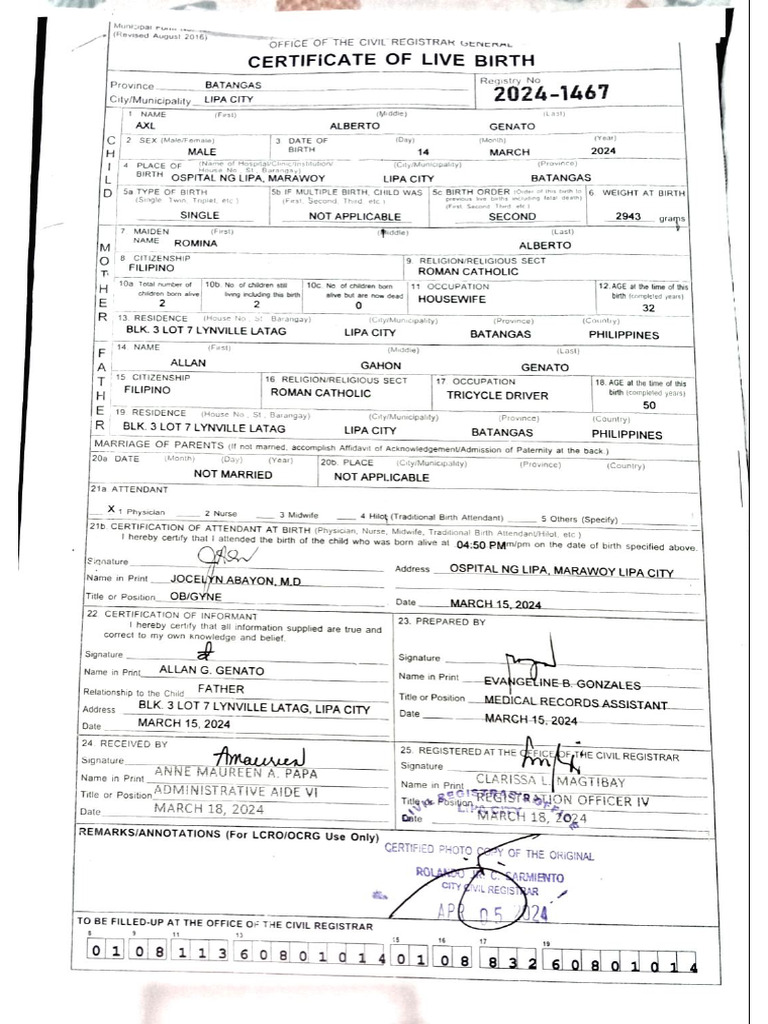 Municipal Form No.
(Revised August 2016)
OFFICE OF THE CIVIL REGISTRAR GENERAL
CERTIFICATE OF LIVE BIRTH
Province BATANGAS
City/Municipality LIPA CITY
Registry No
2024-1467
CHILD
1 NAME (First) (Middle) (Last)
AXL ALBERTO GENATO
2 SEX (Male/Female) 3 DATE OF BIRTH (Day) (Month) (Year)
MALE 14 MARCH 2024
4 PLACE OF BIRTH (Name of Hospital/Clinic/Institution/ House No., St., Barangay) (City/Municipality) (Province)
OSPITAL NG LIPA, MARAWOY LIPA CITY BATANGAS
5a TYPE OF BIRTH (Single, Twin, Triplet, etc.) 5b IF MULTIPLE BIRTH, CHILD WAS (First, Second, Third, etc.) 5c BIRTH ORDER (Order of this birth to previous live births including fetal death) (First, Second, Third, etc.) 6. WEIGHT AT BIRTH
SINGLE NOT APPLICABLE SECOND 2943 grams
MOTHER
7 MAIDEN NAME (First) (Middle) (Last)
ROMINA ALBERTO
8 CITIZENSHIP 9. RELIGION/RELIGIOUS SECT
FILIPINO ROMAN CATHOLIC
10a Total number of children born alive 10b. No. of children still living including this birth 10c. No. of children born alive but are now dead 11 OCCUPATION 12. AGE at the time of this birth (completed years)
2 2 0 HOUSEWIFE 32
13. RESIDENCE (House No., St., Barangay) (City/Municipality) (Province) (Country)
BLK. 3 LOT 7 LYNVILLE LATAG LIPA CITY BATANGAS PHILIPPINES
FATHER
14 NAME (First) (Middle) (Last)
ALLAN GAHON GENATO
15 CITIZENSHIP 16 RELIGION/RELIGIOUS SECT 17 OCCUPATION 18. AGE at the time of this birth (completed years)
FILIPINO ROMAN CATHOLIC TRICYCLE DRIVER 50
19 RESIDENCE (House No., St., Barangay) (City/Municipality) (Province) (Country)
BLK. 3 LOT 7 LYNVILLE LATAG LIPA CITY BATANGAS PHILIPPINES
MARRIAGE OF PARENTS (If not married, accomplish Affidavit of Acknowledgement/Admission of Paternity at the back.)
20a DATE (Month) (Day) (Year) 20b. PLACE (City/Municipality) (Province) (Country)
NOT MARRIED NOT APPLICABLE
21a. ATTENDANT
X 1 Physician 2 Nurse 3 Midwife 4 Hilot (Traditional Birth Attendant) 5 Others (Specify)
21b. CERTIFICATION OF ATTENDANT AT BIRTH (Physician, Nurse, Midwife, Traditional Birth Attendant/Hilot, etc.)
I hereby certify that I attended the birth of the child who was born alive at 04:50 PM m/pm on the date of birth specified above.
Signature
Name in Print JOCELYN ABAYON, M.D
Title or Position OB/GYNE
Address OSPITAL NG LIPA, MARAWOY LIPA CITY
Date MARCH 15, 2024
22 CERTIFICATION OF INFORMANT
I hereby certify that all information supplied are true and correct to my own knowledge and belief.
Signature
Name in Print ALLAN G. GENATO
Relationship to the Child FATHER
Address BLK. 3 LOT 7 LYNVILLE LATAG, LIPA CITY
Date MARCH 15, 2024
23. PREPARED BY
Signature
Name in Print EVANGELINE B. GONZALES
Title or Position MEDICAL RECORDS ASSISTANT
Date MARCH 15, 2024
24. RECEIVED BY
Signature Amaureen
Name in Print ANNE MAUREEN A. PAPA
Title or Position ADMINISTRATIVE AIDE VI
Date MARCH 18, 2024
25. REGISTERED AT THE OFFICE OF THE CIVIL REGISTRAR
Signature
Name in Print CLARISSA L. MAGTIBAY
Title or Position REGISTRATION OFFICER IV
Date MARCH 18, 2024
CIVIL REGISTRAR'S OFFICE
LIPA CITY
REMARKS/ANNOTATIONS (For LCRO/OCRG Use Only)
CERTIFIED PHOTO COPY OF THE ORIGINAL
ROLANDO C. SARMIENTO
CITY CIVIL REGISTRAR
APR 05 2024
TO BE FILLED-UP AT THE OFFICE OF THE CIVIL REGISTRAR
8 9 11 13 15 16 17 19
0 1 0 8 1 1 3 6 0 8 0 1 0 1 4 0 1 0 8 8 3 2 6 0 8 0 1 0 1 4